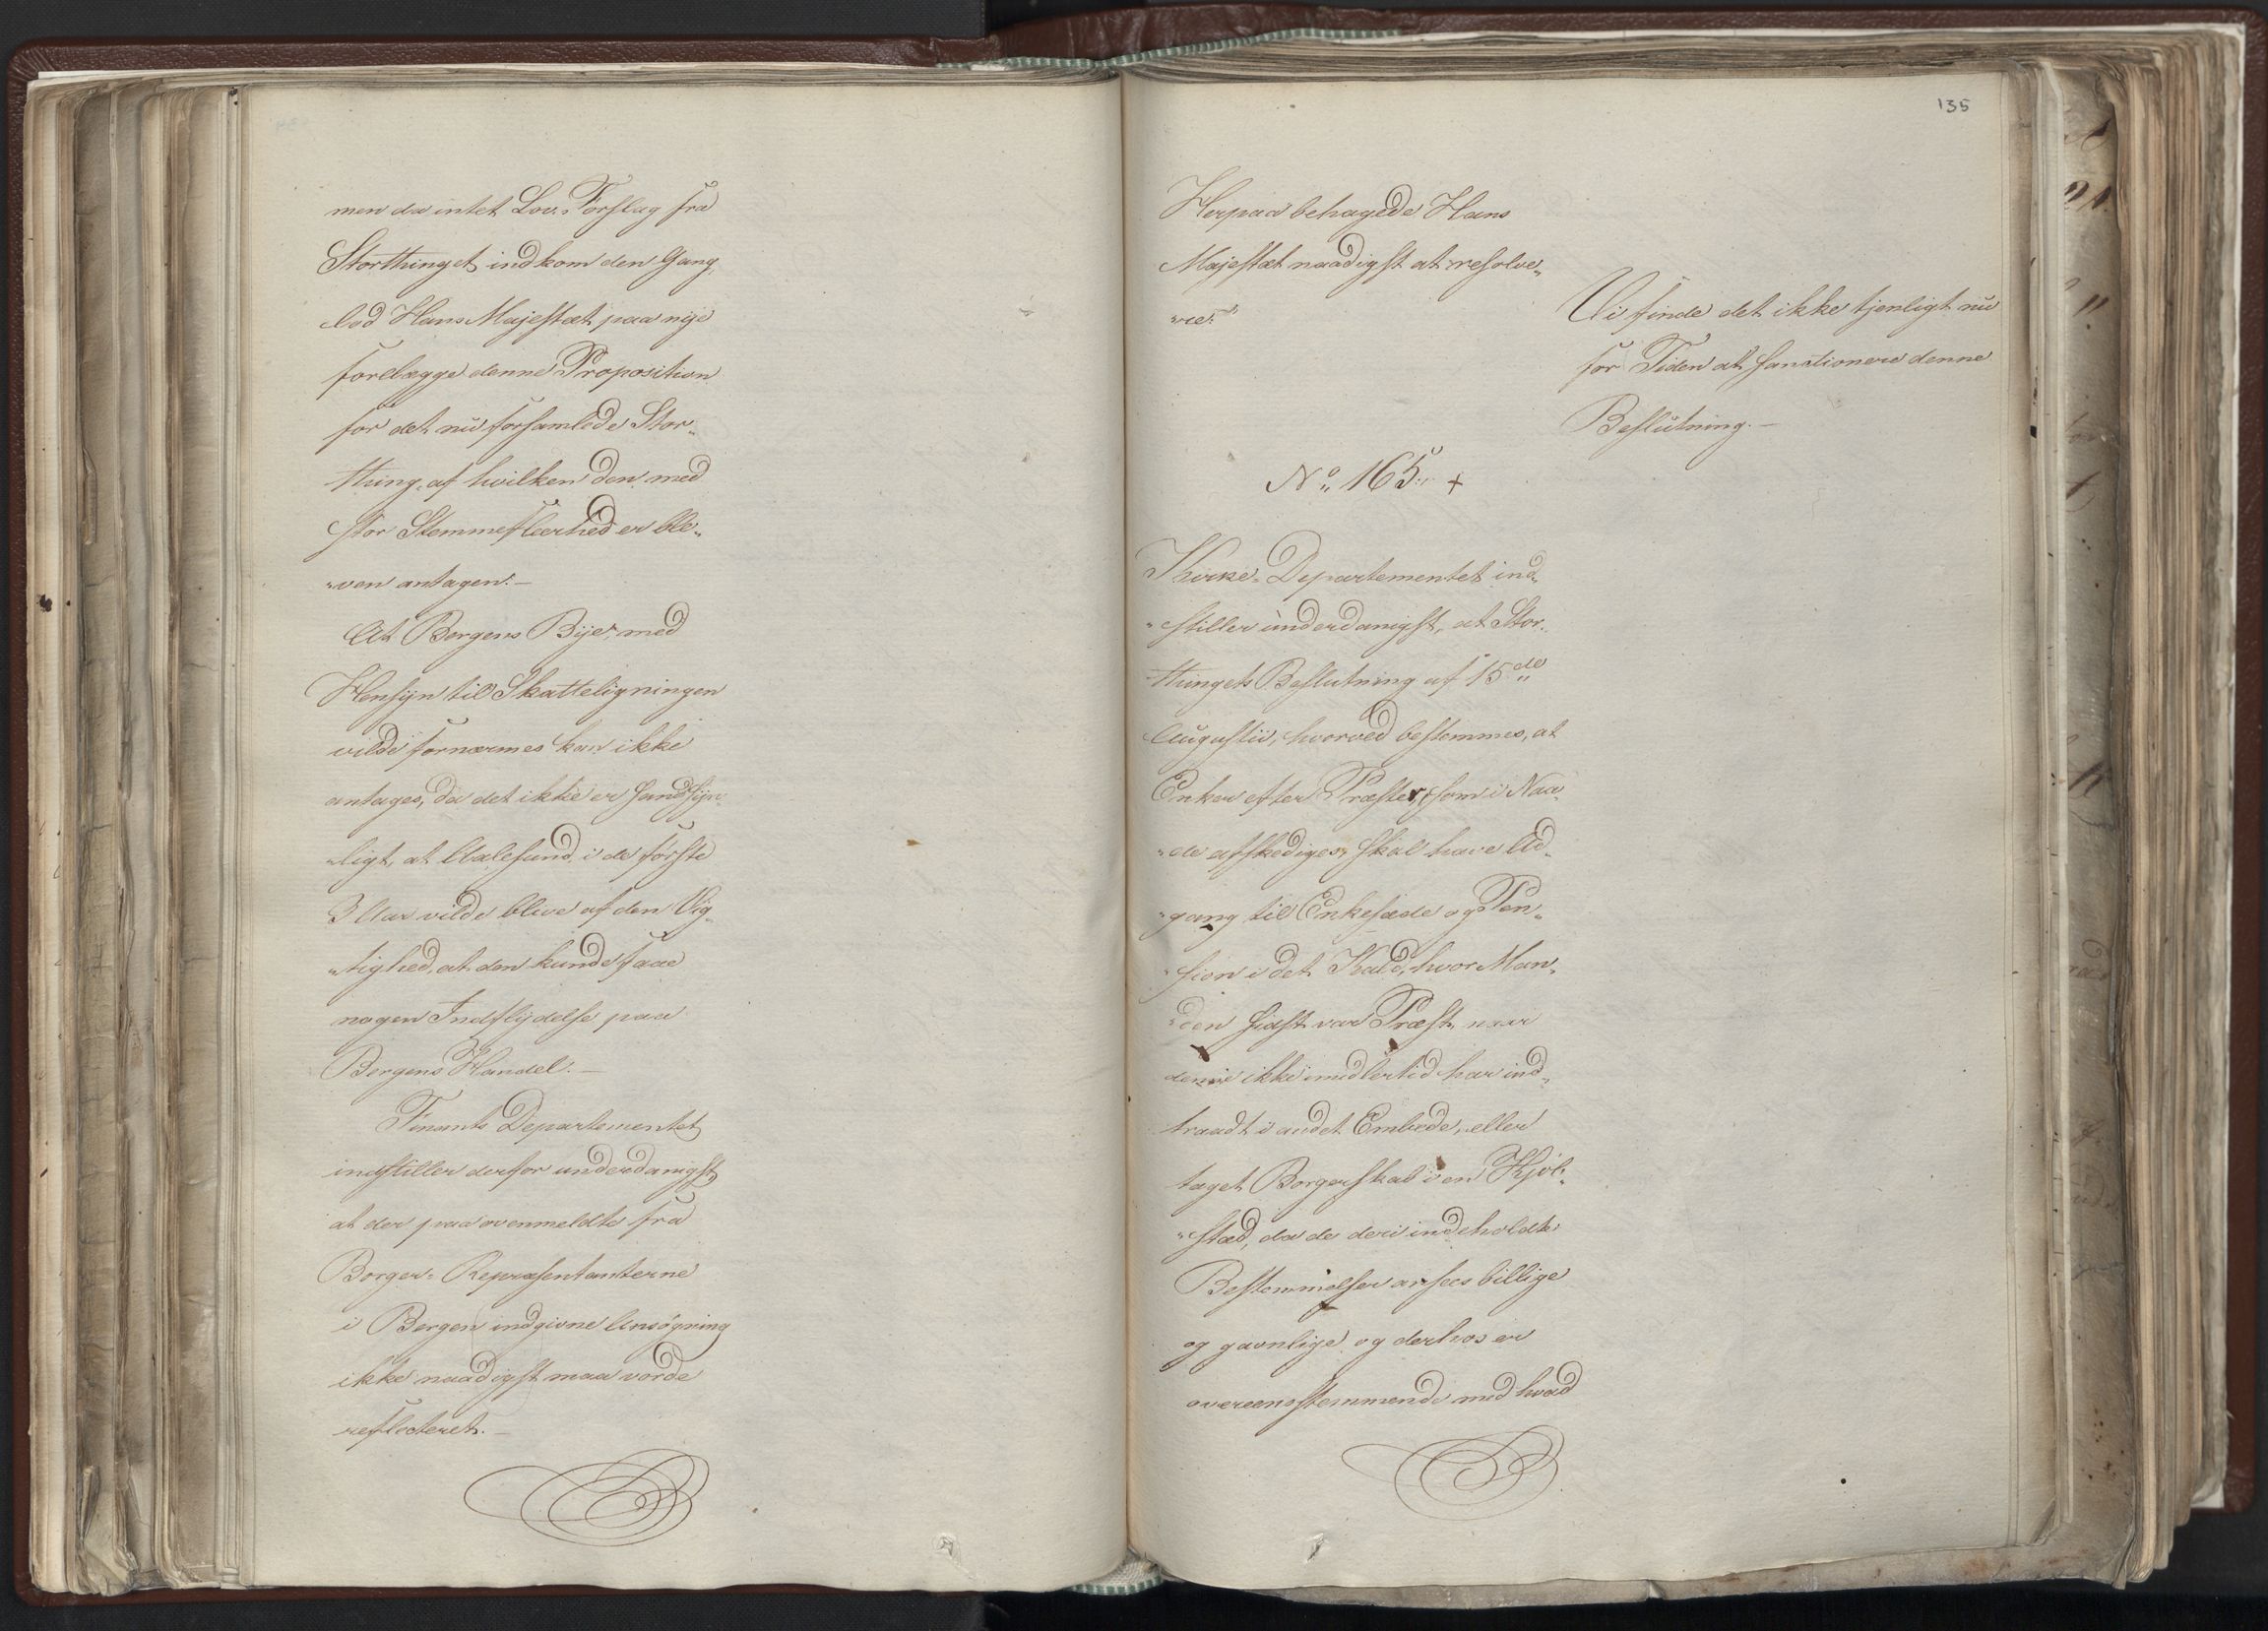 men da intet Lov-Forslag fra
Storthinget indkom den Gang,
lod Hans Majestæt paa nye
forelægge denne Proposition
for det nu forsamlede Stor„
thing, af hvilken den med
stor Stemmefleerhed er ble„
„ven antagen. —
At Bergens Bye, med
Hensyn til Skatteligningen
vilde fornærmes kan ikke
antages, da det ikke er sandsyn„
„ligt, at Aalesund i de første
3 Aar vilde blive af den Vig„
„tighed, at den kunde faae
nogen Indflydelse paa
Bergens Handel. —
Finants Departementet
indstiller derfor underdanigst,
at der paa ovenmeldte fra
Borger-Repræsentanterne
i Bergen indgivne Ansøgning
ikke naadigst maa vorde
reflecteret. —
135
Herpaa behagede Hans
Majestæt naadigst at resolve„
„re:
Vi finde det ikke tjenligt nu
for Tiden at sanctionere denne
Beslutning. —
No. 165. +
Kirke-Departementet ind„
„stiller underdanigst, at Stor„
thingets Beslutning af 15de
Augustii, hvorved bestemmes, at
Enker efter Præster, som i Naa„
„de afskediges, skal have Ad„
„gang til Enkesæde og Pen„
„sion i det Kald, hvor Man„
„den sidst var Præst, naar
denne ikke imidlertid har ind„
traadt i andet Embede, eller
taget Borgerskab i en Kjøb„
„stæd, da de deri indeholdte
Bestemmelser ansees billige
og gavnlige og derhos er
overeensstemmende med hvad